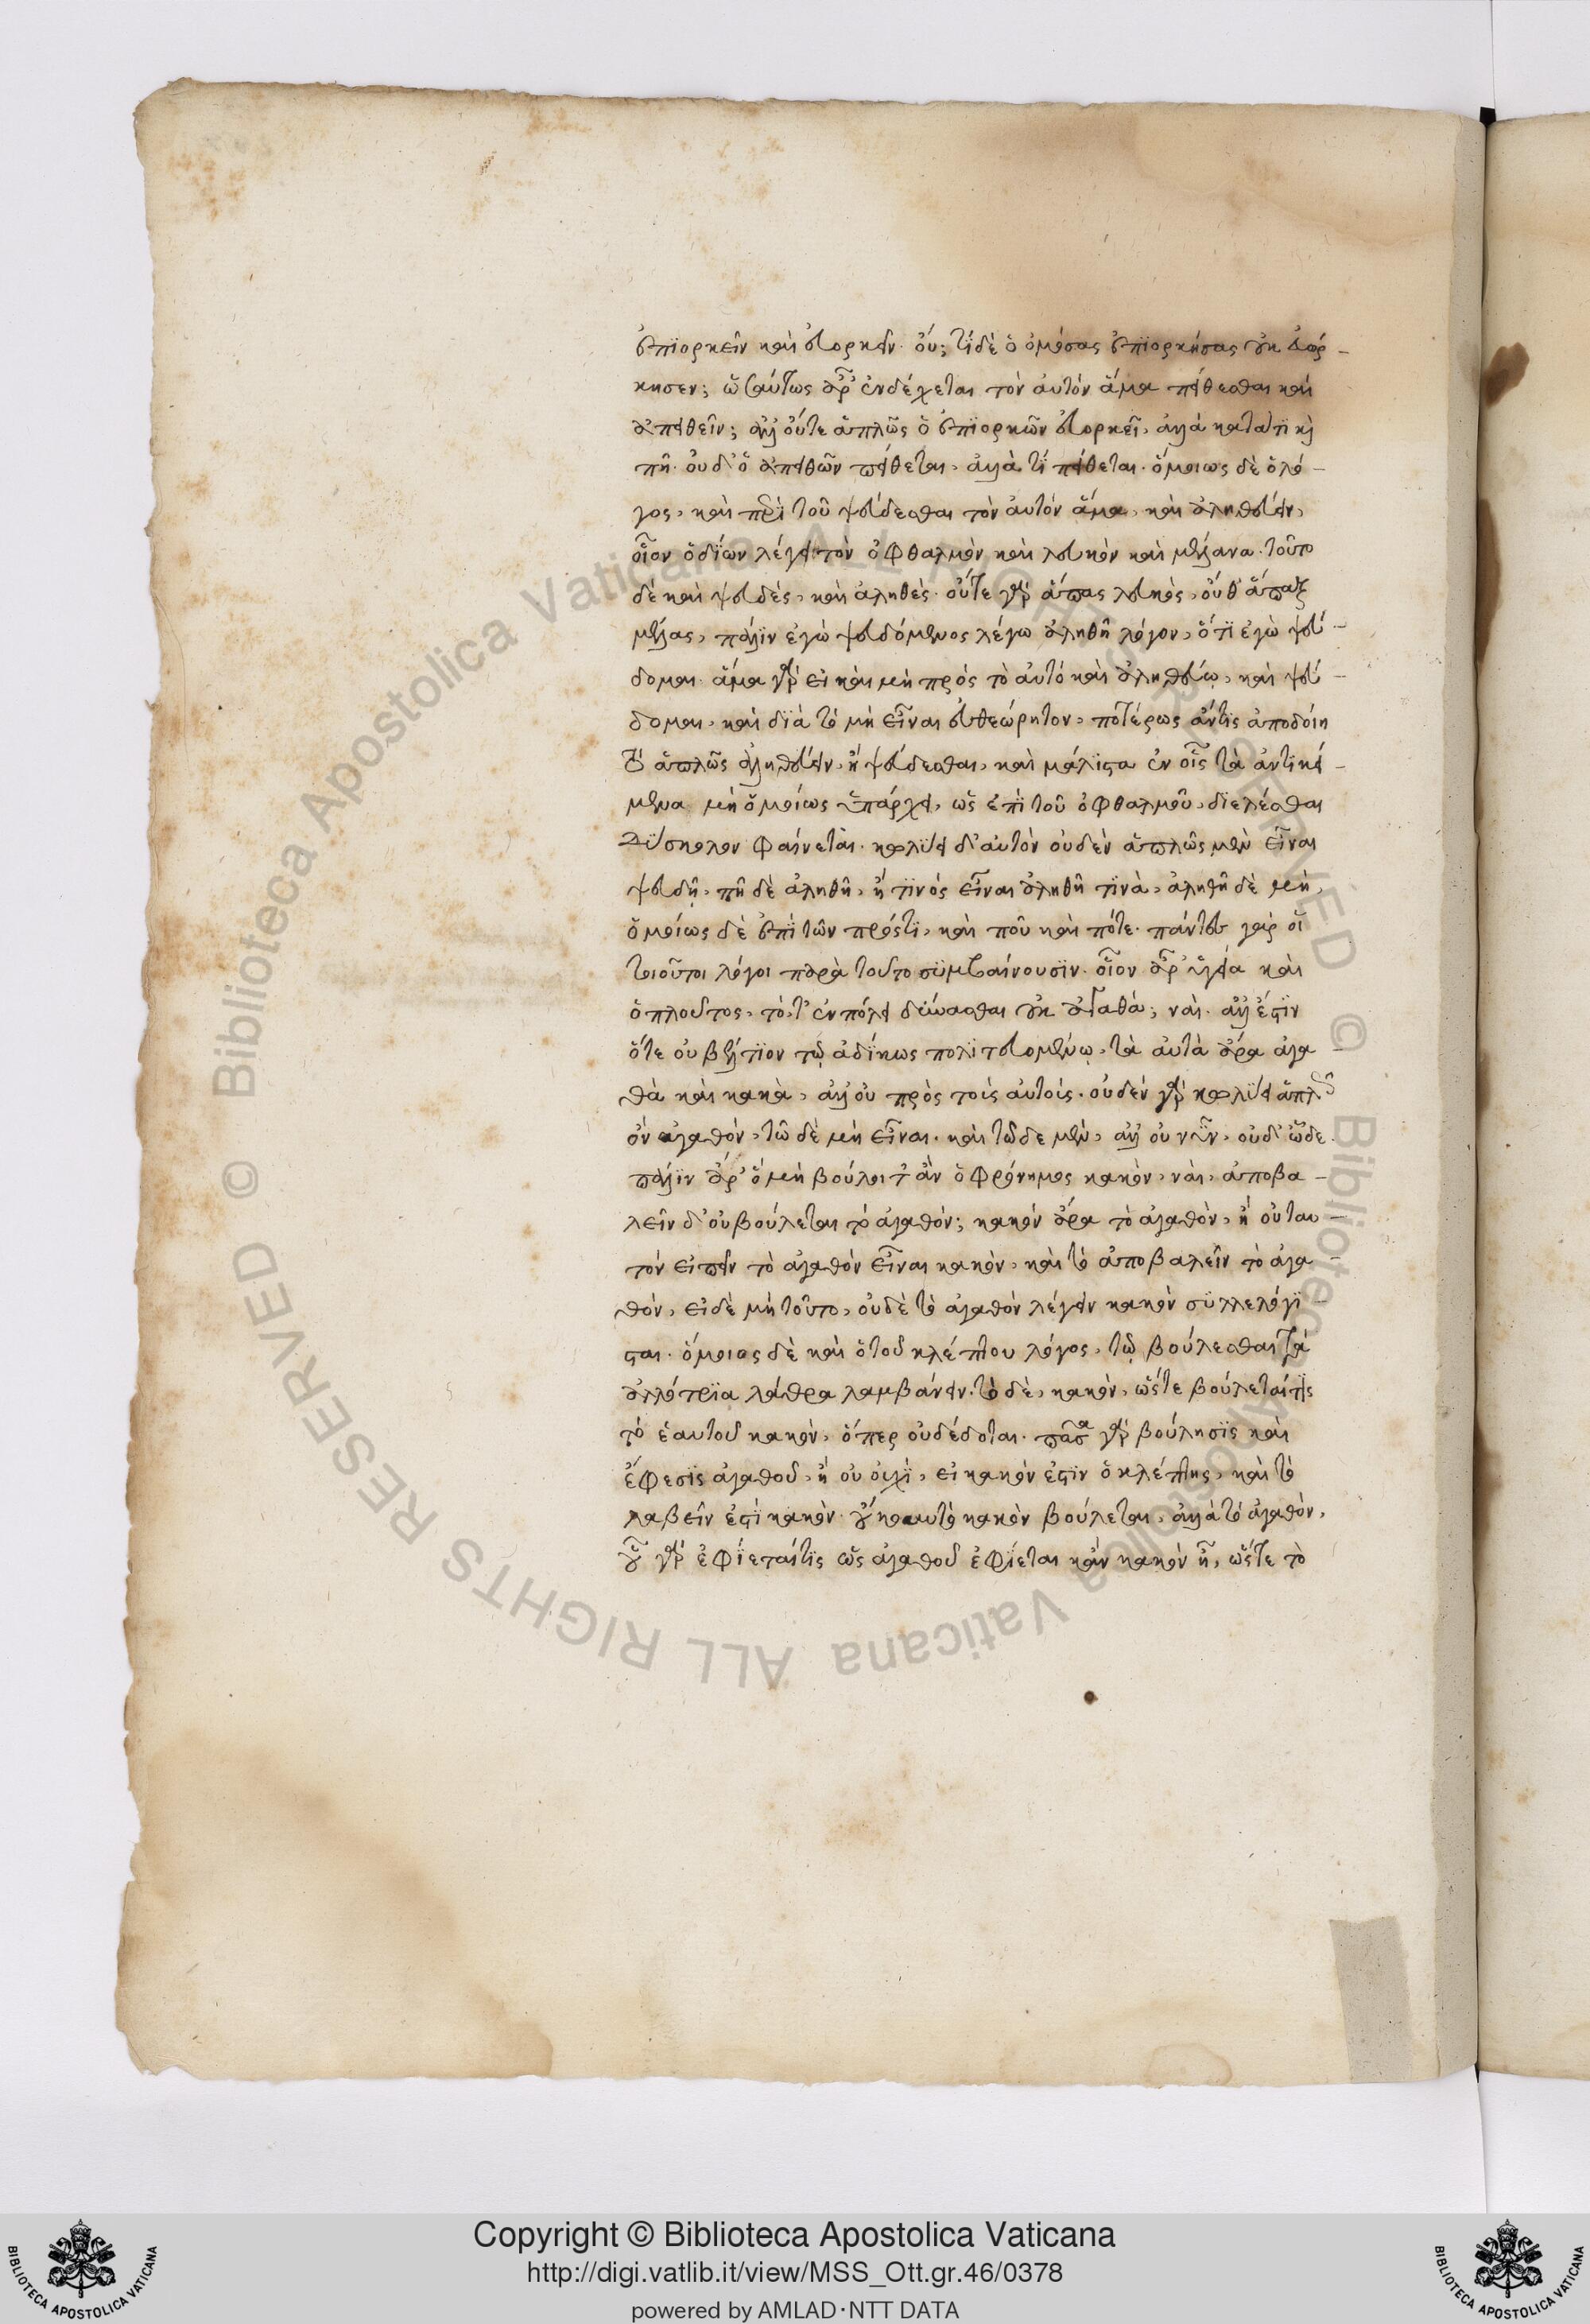 ἐπιορκεῖν καὶ εὐορκεῖν. οὔ; τί δὲ ὁ ὀμόσας ἐπιορκήσας οὐκ εὐόρ-
κησεν; ὡσαύτως ἆρ' ἐνδέχεται τὸν αὐτὸν ἅμα πείθεσθαι καὶ
ἀπειθεῖν; ἀλλ' οὔτε ἁπλῶς ὁ ἐπιορκῶν εὐορκεῖ, ἀλλὰ κατά τι καὶ
πῇ. οὐδ' ὁ ἀπειθῶν πείθεται, ἀλλὰ τί πείθεται. ὅμοιως δὲ ὁ λό-
γος, καὶ περὶ τοῦ ψεύδεσθαι τὸν αὐτὸν ἅμα, καὶ ἀληθεύειν,
οἷον ὁ δϊίων λέγει τὸν ὀφθαλμὸν καὶ λευκὸν καὶ μέλανα. τοῦτο
δὲ καὶ ψευδὲς, καὶ ἀληθὲς. οὔτε γὰρ ἅπας λευκὸς, οὔθ' ἅπαξ
μέλας, πάλιν ἐγὼ ψευδόμενος λέγω ἀληθῆ λόγον, ὅτι ἐγὼ ψεύ-
δομαι. ἅμα γὰρ εἰ καὶ μὴ πρὸς τὸ αὐτὸ καὶ ἀληθεύω, καὶ ψεύ-
δομαι, καὶ διὰ τὸ μὴ εἶναι εὐθεώρητον, ποτέρως ἄν τις ἀποδοίη
τὸ ἁπλῶς ἀληθεύειν, ἢ ψεύδεσθαι, καὶ μάλιστα ἐν οἷς τὰ ἀντικεί-
μενα μὴ ὁμοίως ὑπάρχει, ὡς ἐπὶ τοῦ ὀφθαλμοῦ, διελέσθαι
δύσκολον φαίνεται. κωλύει δ' αὐτὸν οὐδὲν ἁπλῶς μὲν εἶναι
ψευδῆ, πῇ δὲ ἀληθῆ, ἤ τινὸς εἶναι ἀληθῆ τινὰ, ἀληθῆ δὲ μὴ,
ὁμοίως δὲ ἐπὶ τῶν πρός τι, καὶ ποῦ καὶ πότε. πάντες γὰρ οἱ
τοιοῦτοι λόγοι παρὰ τοῦτο συμβαίνουσιν. οἷον ἆρ' ὑγεία καὶ
ὁ πλοῦτος, τό, τ' ἐν πόλει δύνασθαι οὐκ ἀγαθά; ναί. ἀλλ' ἔστιν
ὅτε οὐ βέλτιον τῷ ἀδίκως πολιτευομένῳ, τὰ αὐτὰ ἄρα ἀγα-
θὰ καὶ κακὰ, ἀλλ' οὐ πρὸς τοῖς αὐτοῖς. οὐδὲν γὰρ κωλύει ἁπλῶς
ὂν ἀγαθὸν, τῷ δὲ μὴ εἶναι. καὶ τῷδε μὲν, ἀλλ' οὐ νῦν, οὐδ' ὧδε.
πάλιν ἆρ' ὃ μὴ βούλοιτ' ἂν ὁ φρόνιμος κακὸν, ναί, ἀποβα-
λεῖν δ' οὐ βούλεται τὸ ἀγαθὸν; κακὸν ἄρα τὸ ἀγαθὸν, ἢ οὐ ταυ-
τὸν εἰπεῖν τὸ ἀγαθὸν εἶναι κακὸν, καὶ τὸ ἀποβαλεῖν τὸ ἀγα-
θὸν, εἰ δὲ μὴ τοῦτο, οὐδὲ τὸ ἀγαθὸν λέγειν κακὸν συλλελόγι-
σται. ὅμοιος δὲ καὶ ὁ τοῦ κλέπτου λόγος, τῷ βούλεσθαι τὰ
ἀλλότρια λάθρα λαμβάνειν. τὸ δὲ, κακὸν, ὥστε βούλεταί τις
τὸ ἑαυτοῦ κακὸν, ὅπερ οὐ δέδοται. πᾶσα γὰρ βούλησις καὶ
ἔφεσις ἀγαθοῦ, ἢ οὐ οὐχὶ, εἰ κακὸν ἐστὶν ὁ κλέπτης, καὶ τὸ
λαβεῖν ἐστὶ κακὸν. βούλεται, ἀλλὰ τὸ ἀγαθὸν,
οὗ γὰρ ἐφίεταί τις ὡς ἀγαθοῦ ἐφίεται κἂν κακὸν ᾖ, ὥστε τὸ
Copyright © Biblioteca Apostolica Vaticana
http://digi.vatlib.it/view/MSS_Ott.gr.46/0378
powered by AMLAD·NTT DATA
BIBLIOTECA APOSTOLICA VATICANA
BIBLIOTECA APOSTOLICA VATICANA
© Biblioteca Apostolica Vaticana ALL RIGHTS RESERVED
© Biblioteca Apostolica Vaticana ALL RIGHTS RESERVED